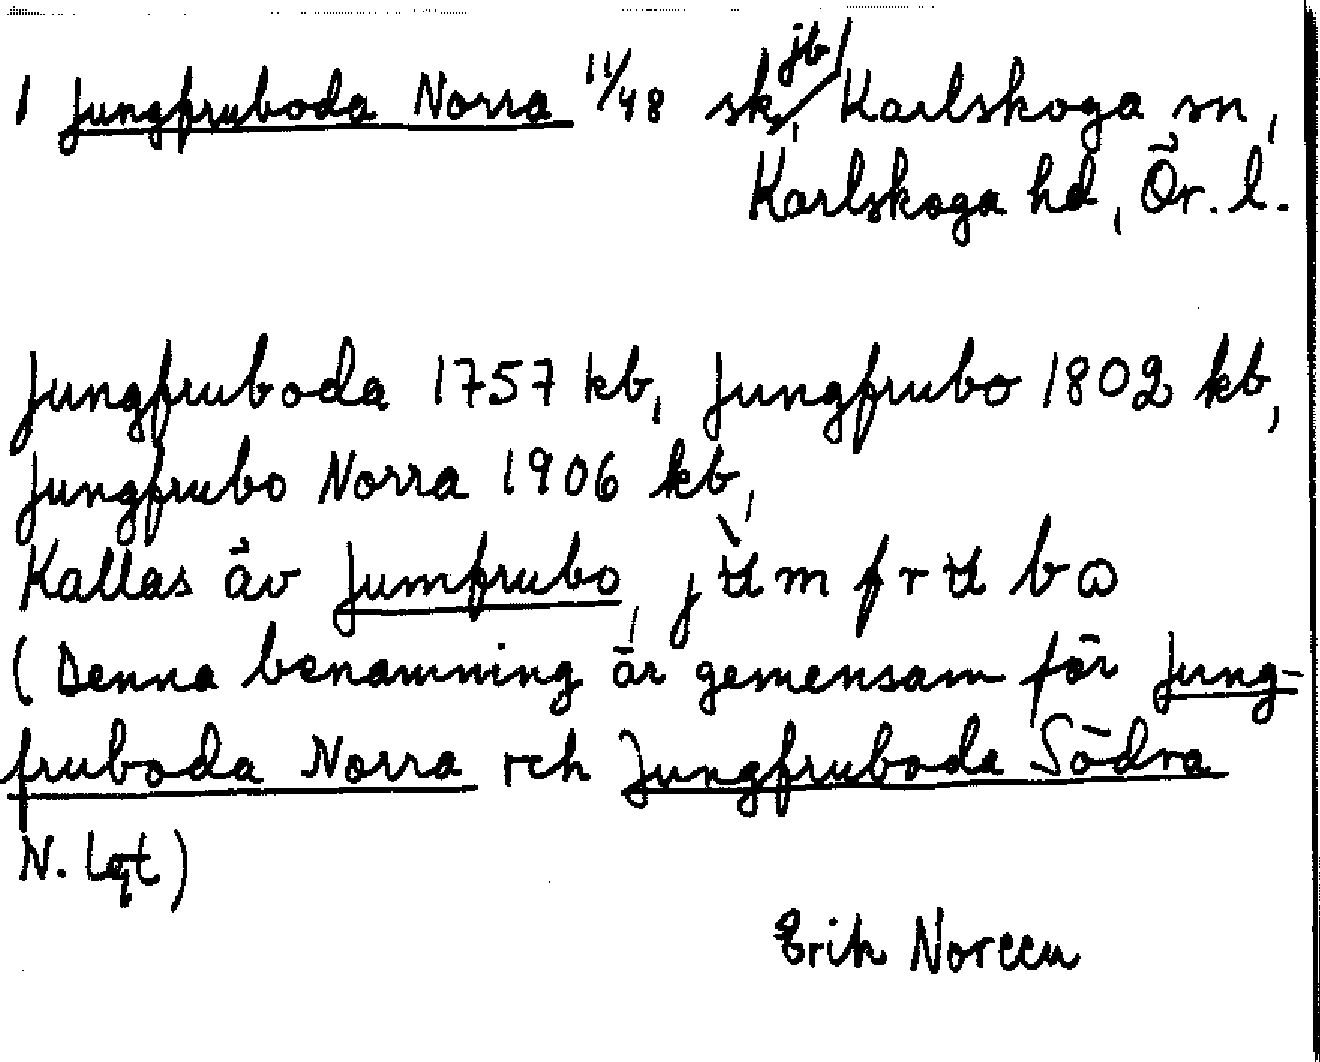 1 Jungfruboda Norra 11/48 sk, jb/ Karlskoga sn,
Karlskoga hd, Ör. l.
Jungfruboda 1757 kb, Jungfrubo 1802 kb,
Jungfrubo Norra 1906 kb,
Kallas äv Jumfrubo,
(Denna benämning är gemensam för Jung-
fruboda Norra och Jungfruboda Södra
N. lgt)
Erik Noreen